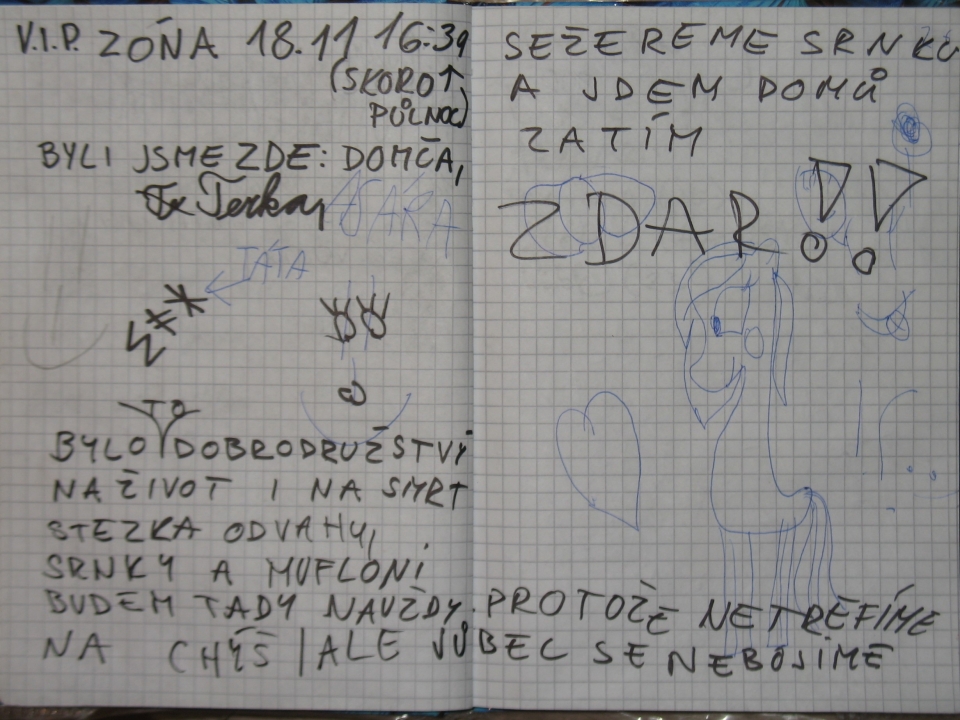 V.I.P. ZÓŇA 18.11 16:39
(SKORO↑
PŮLNOC)
BYLI JSME ZDE: DOMČA,
Terka, SÁRA
TÁTA
TO
BYLO DOBRODRUŽSTVÝ
NA ŽIVOT I NA SMRT
STEZKA ODVAHY,
SRNKY A MUFLONI
BUDEM TADY NAVŽDY. PROTOŽE NETREFÍME
NA CHÝŠ / ALE VŮBEC SE NEBOJÍME
SEŽEREME SRNKU
A JDEM DOMŮ
ZATÍM
ZDAR!!